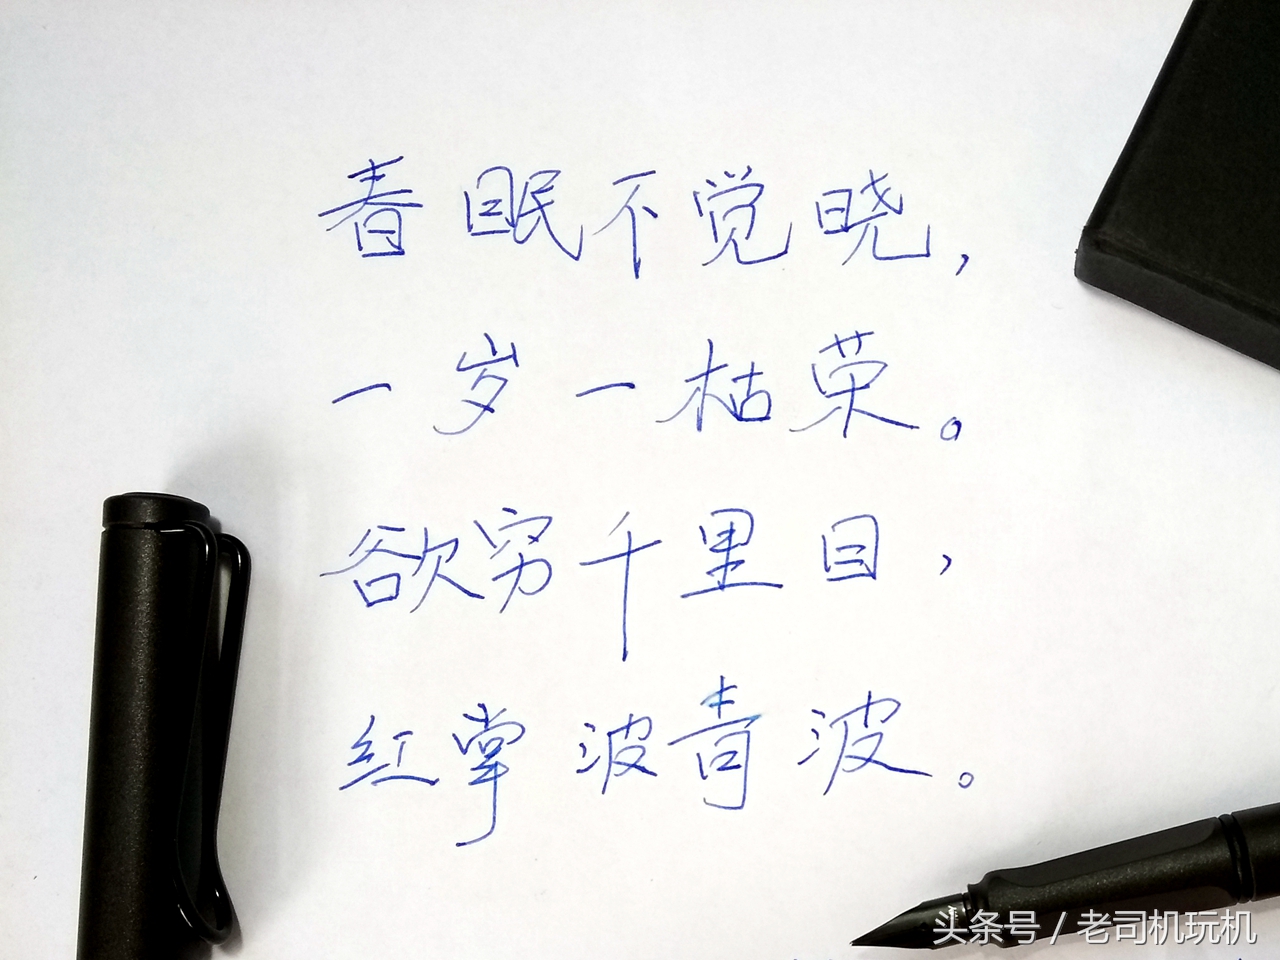 春眠不觉晓，
一岁一枯荣。
欲穷千里目，
红掌波青波。
头条号 / 老司机玩机